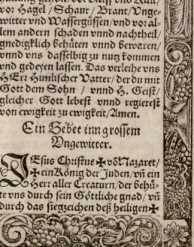 vor Hagel / Schaur / Brant / Unge-
witter vnd Wassergüssen / vnd vor al-
lem andern schaden vnnd nachtheil
gnedigklich behüten vnnd bewaren /
vnnd vns dasselbig zu nutz kommen
vnd gedeyen lassen. Das verleihe vns
HErr Himlischer Vatter / der du mit
Gott dem Sohn / vnnd H. Geist /
gleicher Gott lebest vnnd regierest
von ewigkeit zu ewigkeit / Amen.
Ein Gebet inn grossem
Vngewitter.
JEsus Christus ✠ võ Nazaret /
✠ ein König der Juden / vñ ein
Herr aller Creaturn / der behü-
te vns durch sein Göttliche gnad / vñ
durch das siegzeichen deß heiligen ✠